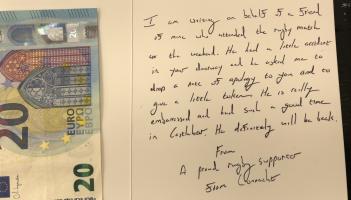 I am writing on behalf of a friend
of mine who attended the rugby match
at the weekend. He had a little accident
in your doorway and he asked me to
drop a note of apology to you and to
give a little token. He is really
embarrassed and had such a good time
in Castlebar. He definitely will be back.
From
A proud rugby supporter
from Connacht
20
EURO
ΕΥΡΩ
20